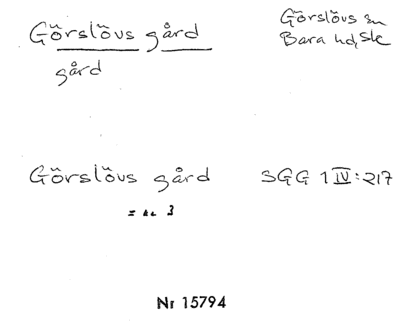 Görslövs gård
gård
Görslövs sn
Bara hd, Sk
Görslövs gård
SGG 1 IV:217
Nr 15794